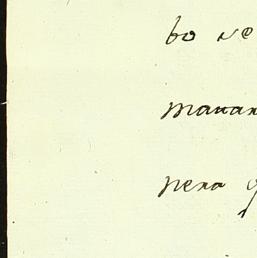 bo ve
manan
pera q